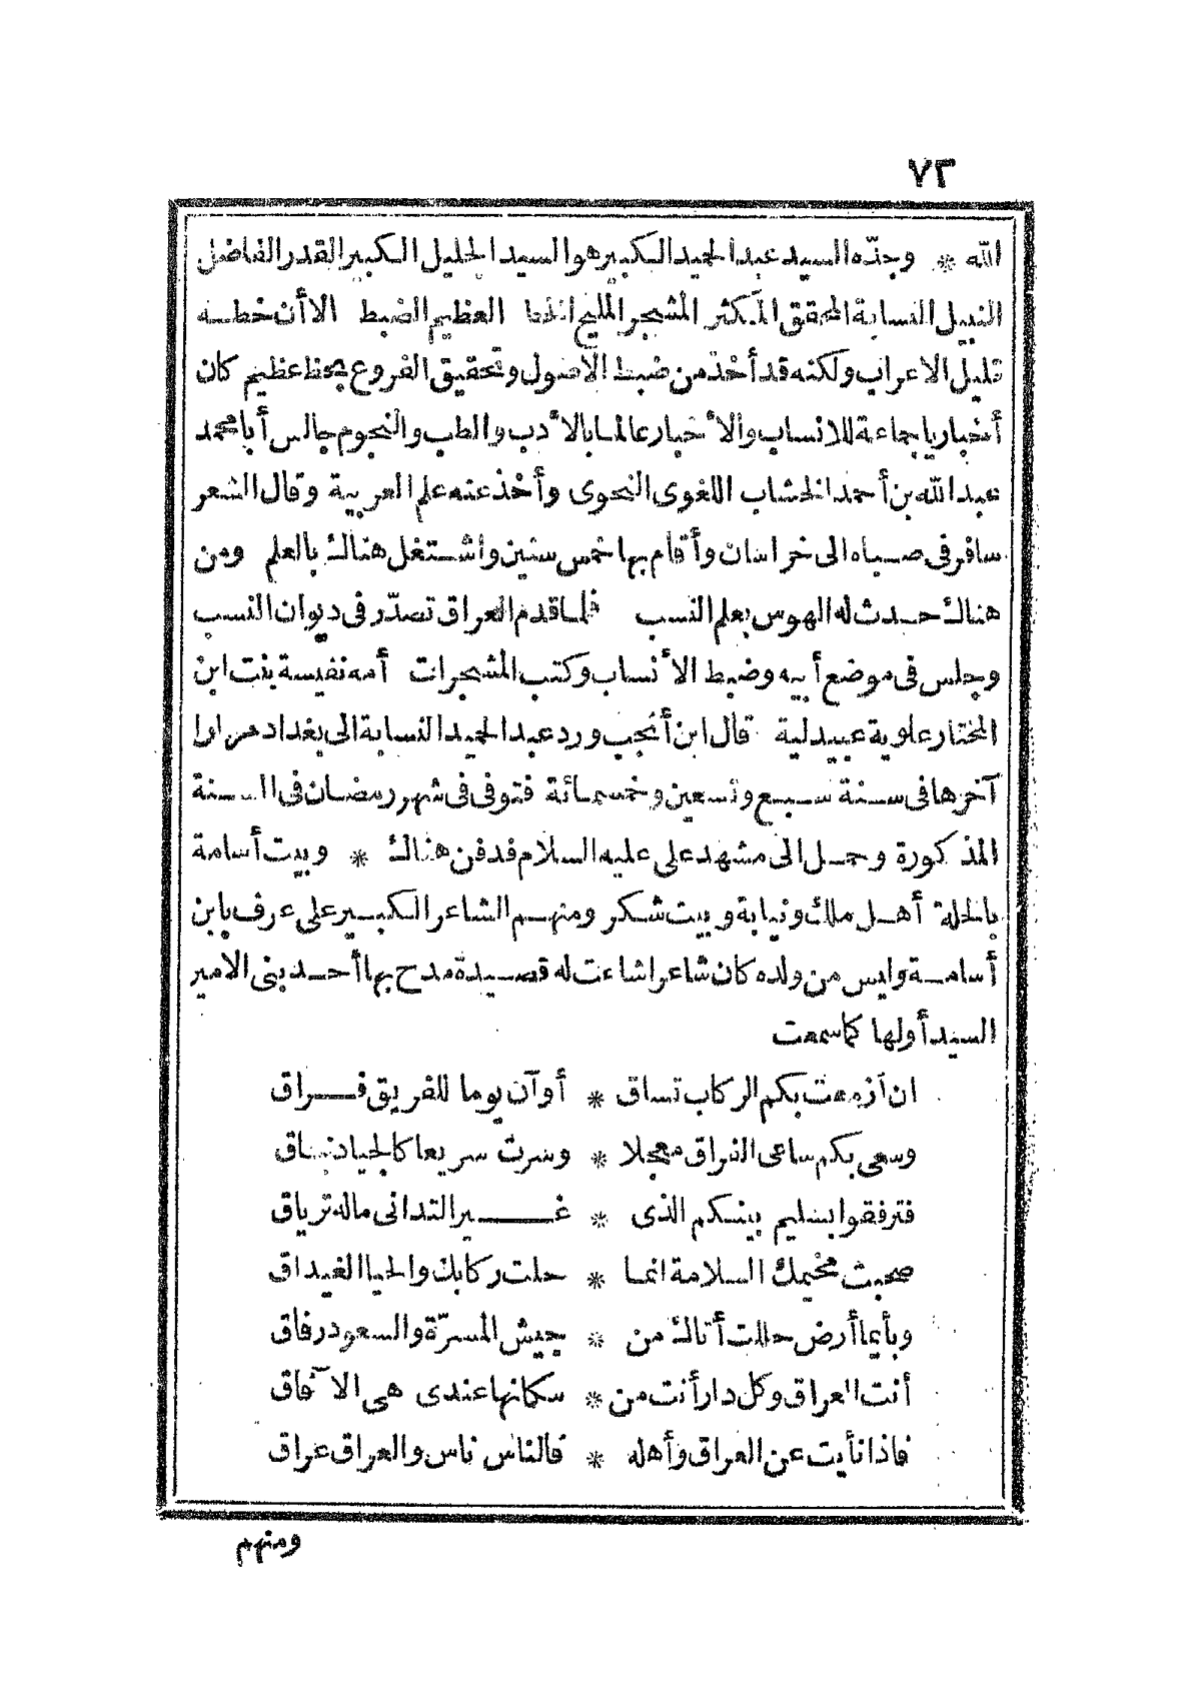 ٧٣
الله * وجدّه السيد عبد الحميد الكبير هو السيد الجليل الكبير القدر الفاضل
النبيل النسابة المحقق المكثر المشجر المليح الخط العظيم الضبط الا أن خطه
قليل الاعراب ولكنه قد أخذ من ضبط الاصول وتحقيق الفروع بحظ عظيم كان
أخباريا جماعة للانساب والأخبار عالما بالأدب والطب والنجوم جالس أبا محمد
عبد الله بن أحمد الخشاب اللغوى النحوى وأخذ عنه علم العربية وقال الشعر
سافر فى صباه الى خراسان وأقام بها خمس سنين واشتغل هنالك بالعلم ومن
هنالك حدث له الهوس بعلم النسب فلما قدم العراق تصدّر فى ديوان النسب
وجلس فى موضع أبيه وضبط الأنساب وكتب المشجرات أمه نفيسة بنت ابن
المختار علوية عبيدلية قال ابن أنجب ورد عبد الحميد النسابة الى بغداد مرارا
آخرها فى سنة سبع وتسعين وخمسمائة فتوفى فى شهر رمضان فى السنة
المذكورة وحمل الى مشهد على عليه السلام فدفن هنالك * وبيت أسامة
بالحلة أهل ملك ونيابة وبيت شكر ومنهم الشاعر الكبير على عرف بابن
أسامة وليس من ولده كان شاعرا شاعت له قصيدة مدح بها أحد بنى الامير
السيد أولها كما سمعت
ان أزمعت بكم الركاب تساق * أو آن يوما للفريق فراق
وسعى بكم ساعى الفراق معجلا * وسرت سريعا كالجياد نياق
فترفقوا بسليم بينكم الذى * غير التدانى ماله ترياق
صحبت مخيمك السلامة انما * حلت ركابك والحيا الغيداق
وبأيما أرض حللت أتاك من * جيش المسرّة والسعود رفاق
أنت العراق وكل دار أنت من * سكانها عندى هى الآفاق
فاذا نأيت عن العراق وأهله * فالناس ناس والعراق عراق
ومنهم